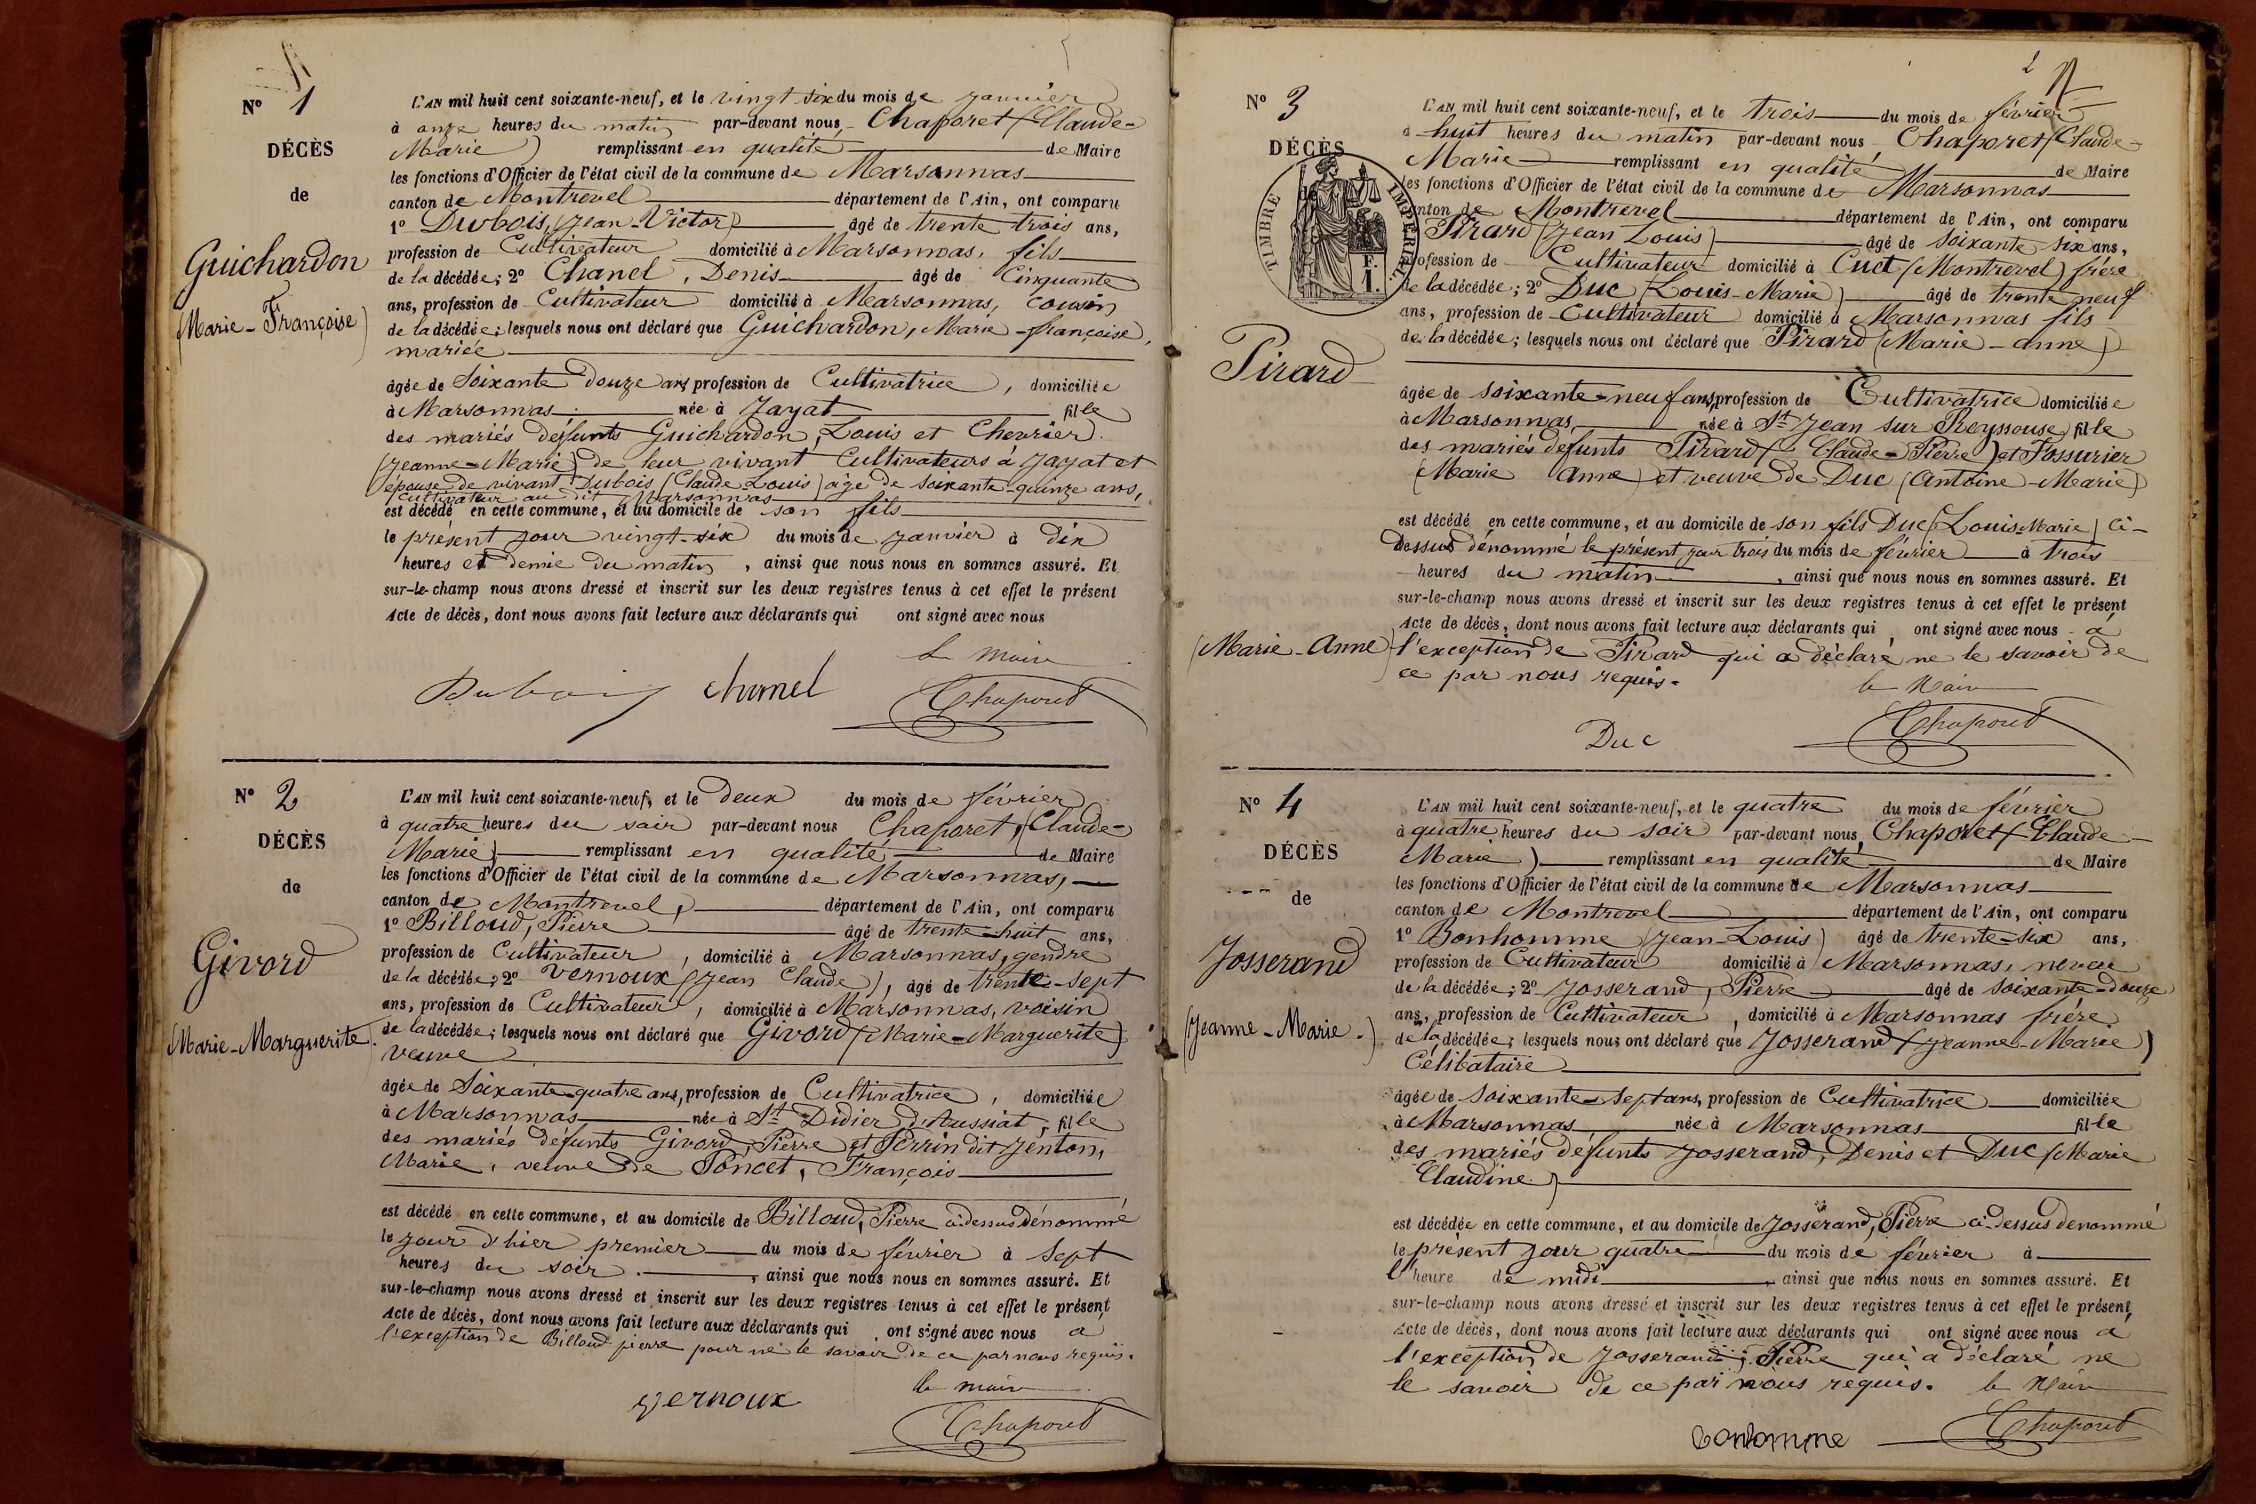 N° 1
DÉCÈS
de
Guichardon
(Marie-Françoise)
L'AN mil huit cent soixante-neuf, et le vingt-six du mois de janvier
à onze heures du matin par-devant nous, Chaporet (Claude-
Marie) remplissant en qualité de Maire
les fonctions d'Officier de l'état civil de la commune de Marsonnas
canton de Montrevel département de l'Ain, ont comparu
1° Dubois, (Jean-Victor) âgé de trente trois ans,
profession de Cultivateur domicilié à Marsonnas, fils
de la décédée; 2° Chanel, Denis âgé de Cinquante
ans, profession de Cultivateur domicilié à Marsonnas, cousin
de la décédée; lesquels nous ont déclaré que Guichardon, Marie-françoise,
mariée
âgée de Soixante douze ans profession de Cultivatrice, domiciliée
à Marsonnas née à Jayat fille
des mariés défunts Guichardon, Louis et Chevrier
(Jeanne-Marie) de leur vivant Cultivateurs à Jayat et
épouse de vivant Dubois (Claude-Louis) âgé de soixante-quinze ans,
Cultivateur au dit Marsonnas
est décédé en cette commune, et au domicile de son fils
le présent jour vingt-six du mois de janvier à dix
heures et demie du matin, ainsi que nous nous en sommes assuré. Et
sur-le-champ nous avons dressé et inscrit sur les deux registres tenus à cet effet le présent
Acte de décès, dont nous avons fait lecture aux déclarants qui ont signé avec nous
le maire
Dubois chanel Chaporet
N° 2
DÉCÈS
de
Givord
(Marie-Marguerite)
L'AN mil huit cent soixante-neuf, et le deux du mois de février
à quatre heures du soir par-devant nous Chaporet, (Claude-
Marie) remplissant en qualité de Maire
les fonctions d'Officier de l'état civil de la commune de Marsonnas,
canton de Montrevel, département de l'Ain, ont comparu
1° Billoud, Pierre âgé de trente-huit ans,
profession de Cultivateur, domicilié à Marsonnas, gendre
de la décédée; 2° Vernoux (Jean Claude), âgé de trente-sept
ans, profession de Cultivateur, domicilié à Marsonnas, voisin
de la décédée; lesquels nous ont déclaré que Givord (Marie-Marguerite)
veuve
âgée de Soixante-quatre ans, profession de Cultivatrice, domiciliée
à Marsonnas née à St Didier d'Aussiat, fille
des mariés défunts Givord, Pierre et Perrin dit Jenton,
Marie, veuve de Poncet, François
est décédé en cette commune, et au domicile de Billoud, Pierre ci-dessus dénommé
le jour d'hier premier du mois de février à Sept
heures du soir, ainsi que nous nous en sommes assuré. Et
sur-le-champ nous avons dressé et inscrit sur les deux registres tenus à cet effet le présent
Acte de décès, dont nous avons fait lecture aux déclarants qui, ont signé avec nous à
l'exception de Billoud pierre pour ne le savoir de ce par nous requis.
le maire
Vernoux Chaporet
2
N° 3
DÉCÈS
TIMBRE IMPÉRIAL
F.
1.
Pirard
(Marie-Anne)
L'AN mil huit cent soixante-neuf, et le trois du mois de février
à huit heures du matin par-devant nous, Chaporet (Claude-
Marie remplissant en qualité de Maire
les fonctions d'Officier de l'état civil de la commune de Marsonnas
canton de Montrevel département de l'Ain, ont comparu
Pirard (Jean Louis) âgé de soixante-six ans,
profession de Cultivateur domicilié à Cuet (Montrevel) frère
de la décédée; 2° Duc (Louis-Marie) âgé de trente neuf
ans, profession de Cultivateur domicilié à Marsonnas fils
de la décédée; lesquels nous ont déclaré que Pirard (Marie-anne)
âgée de soixante-neuf ans, profession de Cultivatrice domiciliée
à Marsonnas, née à St Jean sur Reyssouse, fille
des mariés défunts Pirard (Claude-Pierre) et Fossurier
(Marie Anne) et veuve de Duc (Antoine-Marie)
est décédé en cette commune, et au domicile de son fils Duc (Louis-Marie) ci-
dessus dénommé le présent jour trois du mois de février à trois
heures du matin, ainsi que nous nous en sommes assuré. Et
sur-le-champ nous avons dressé et inscrit sur les deux registres tenus à cet effet le présent
Acte de décès, dont nous avons fait lecture aux déclarants qui, ont signé avec nous à
l'exception de Pirard qui a déclaré ne le savoir de
ce par nous requis.
le Maire
Duc Chaporet
N° 4
DÉCÈS
de
Josserand
(Jeanne-Marie.)
L'AN mil huit cent soixante-neuf, et le quatre du mois de février
à quatre heures du soir par-devant nous, Chaporet (Claude-
Marie) remplissant en qualité de Maire
les fonctions d'Officier de l'état civil de la commune de Marsonnas
canton de Montrevel département de l'Ain, ont comparu
1° Bonhomme (Jean-Louis) âgé de trente-six ans,
profession de Cultivateur domicilié à Marsonnas, neveu
de la décédée; 2° Josserand, Pierre âgé de soixante-douze
ans, profession de Cultivateur, domicilié à Marsonnas frère
de la décédée; lesquels nous ont déclaré que Josserand (Jeanne-Marie)
Célibataire
âgée de soixante-sept ans, profession de Cultivatrice domiciliée
à Marsonnas née à Marsonnas fille
des mariés défunts Josserand, Denis et Duc (Marie
Claudine)
est décédée en cette commune, et au domicile de Josserand, Pierre ci-dessus dénommé
le présent jour quatre du mois de février à
l'heure de midi, ainsi que nous nous en sommes assuré. Et
sur-le-champ nous avons dressé et inscrit sur les deux registres tenus à cet effet le présent,
Acte de décès, dont nous avons fait lecture aux déclarants qui ont signé avec nous à
l'exception de Josserand, Pierre qui a déclaré ne
le savoir de ce par nous requis. le Maire
Bonhomme Chaporet